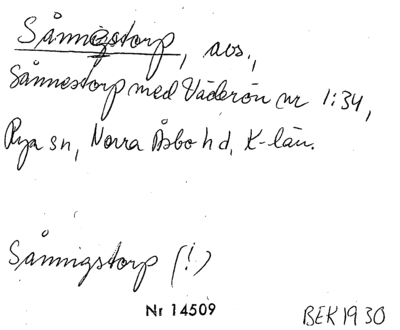 Sånnestorp, avs.,
Sånnestorp med Väderön nr 1:34,
Rya sn, Norra Åsbo hd, K-län.
Sånnigstorp (!)
Nr 14509 BEK 1930